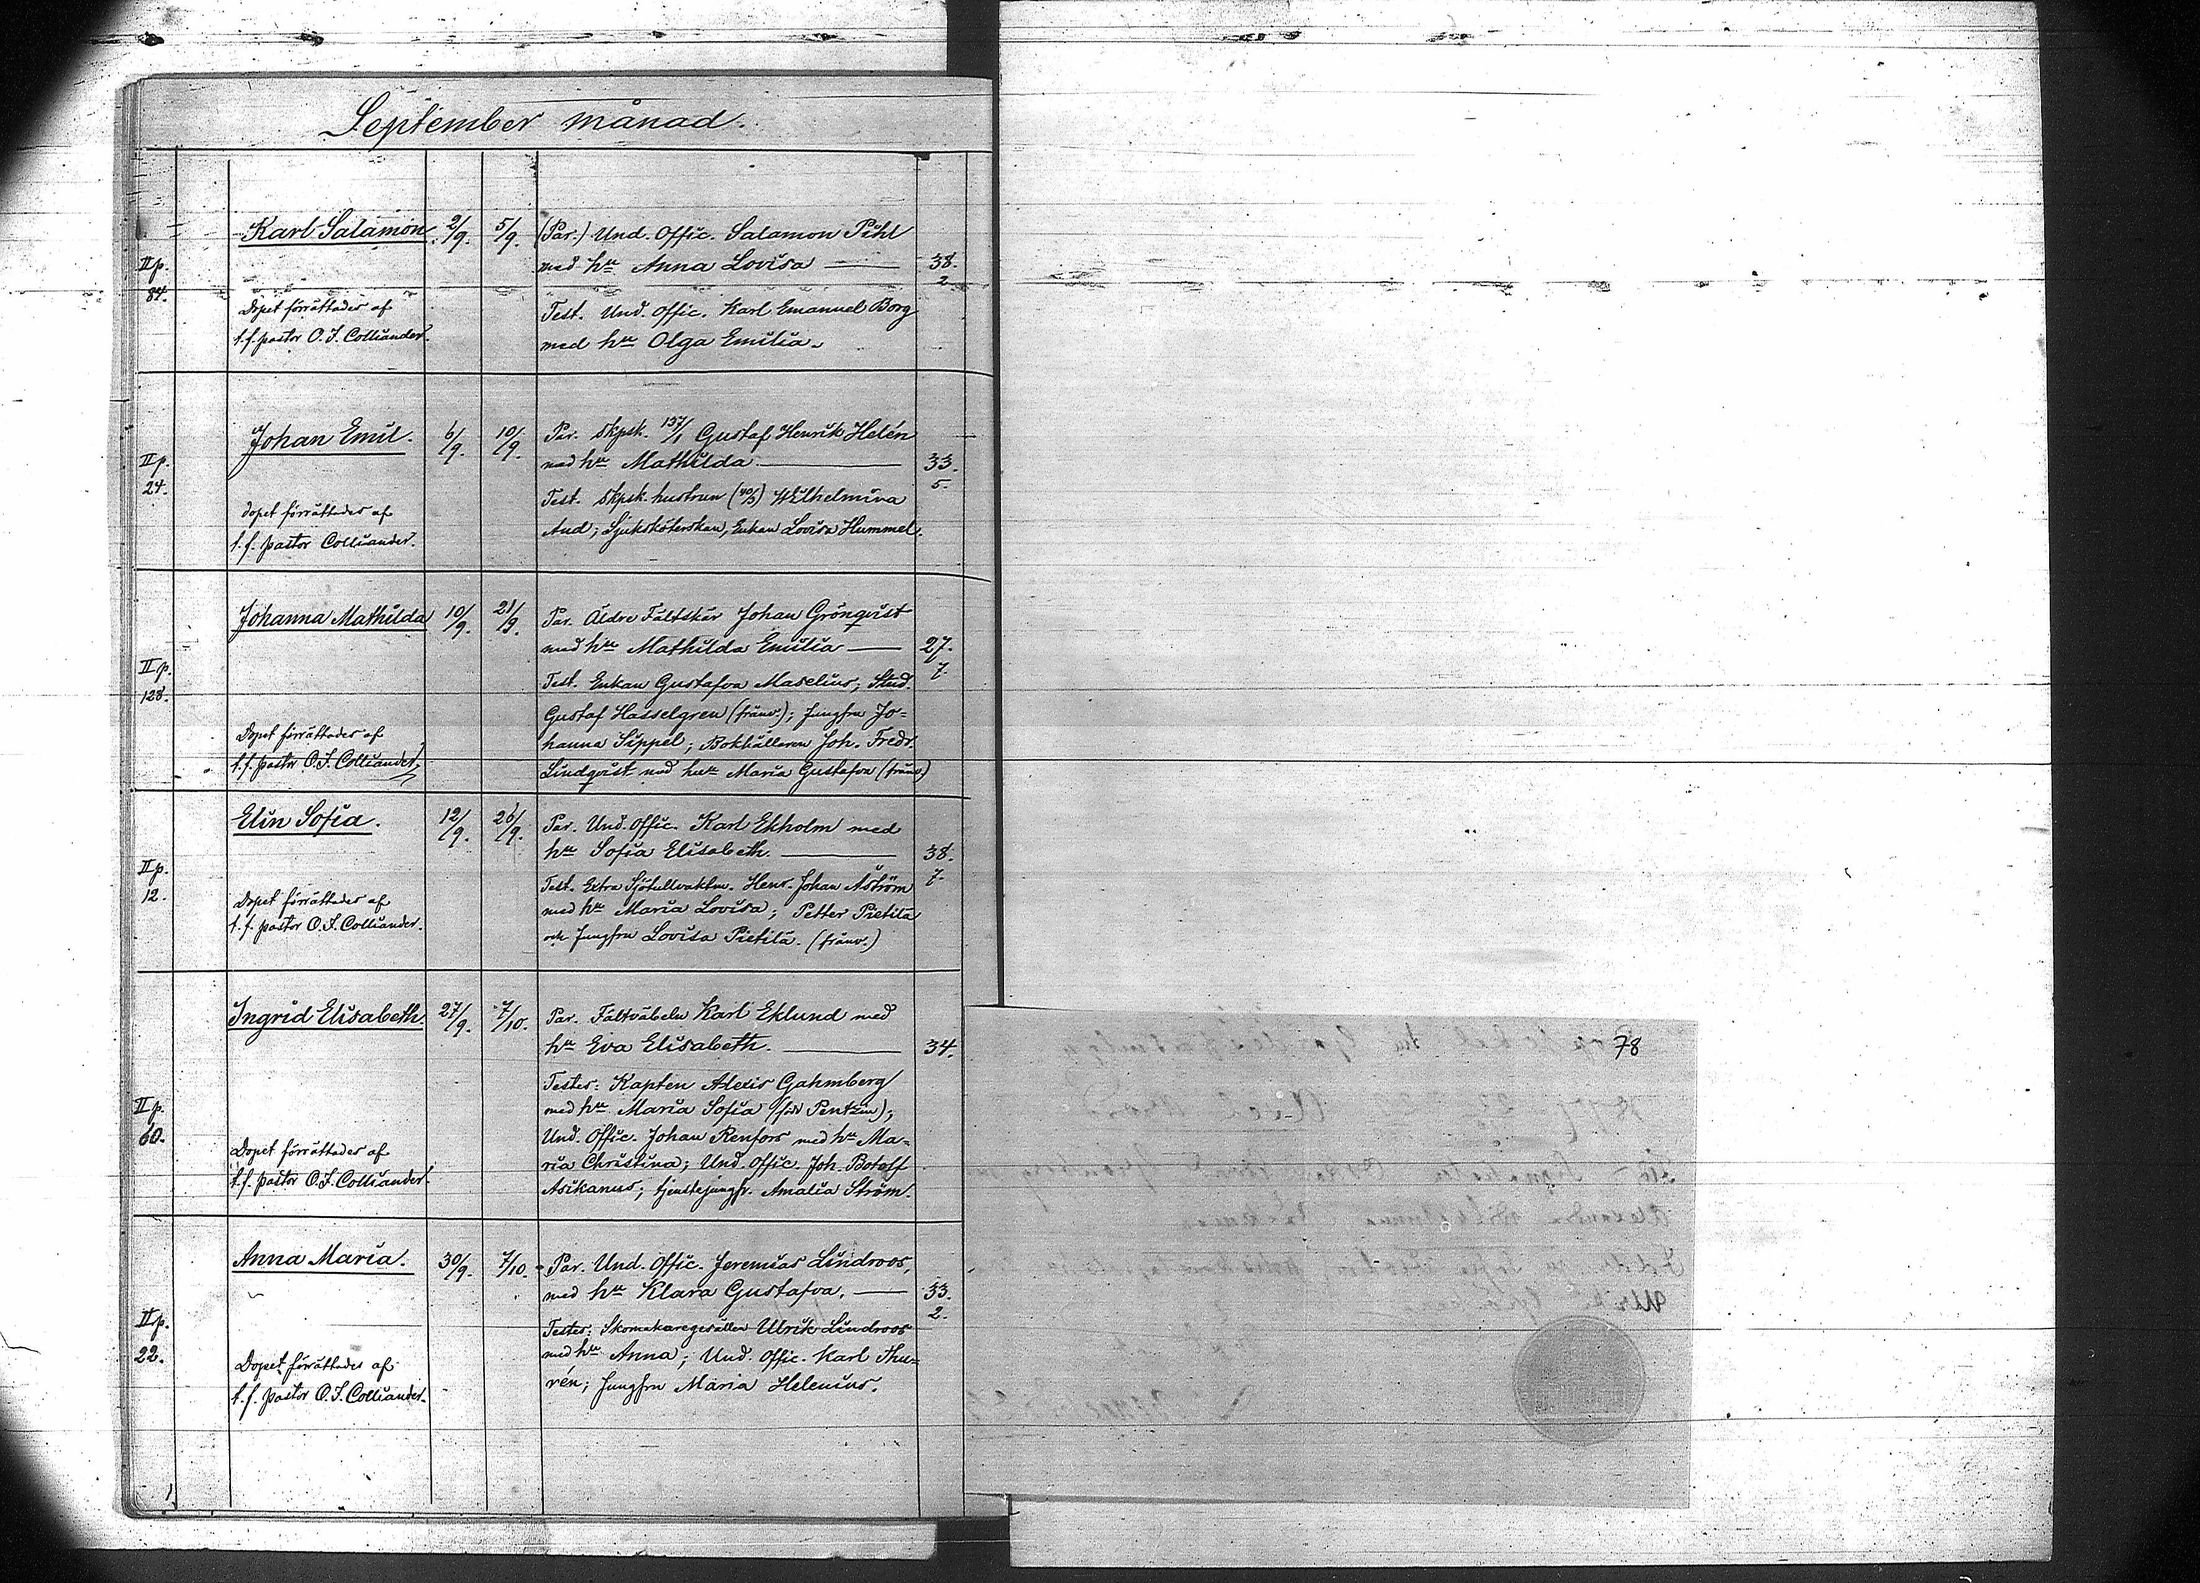 September månad.
Karl Salamon. 2/9. 5/9. (Par.) Und. Offic. Salamon Pihl
II p. med hu Anna Lovisa — 38.
84. 2
Dopet förrättades af Test. Und. Offic. Karl Emanuel Borg
t.f. pastor O. I. Colliander. med hu Olga Emilia.
Johan Emil. 6/9. 10/9. Par. Skpsk. 137/1 Gustaf Henrik Helén
II p. med hu Mathilda — 33.
24. 5.
Test. Skpsk. hustrun (40/3) Wilhelmina
dopet förrättades af And; Sjuksköterskan, Enkan Lovisa Hummel.
t.f. pastor Colliander.
Johanna Mathilda 10/9. 21/9. Par. Äldre Fältskär Johan Grönqvist
med hu Mathilda Emilia — 27.
II p. 7.
128. Test. Enkan Gustafva Maselius; Stud.
Gustaf Hasselgren (frånv.); Jungfru Jo=
Dopet förrättades af hanna Sippel; Bokhållaren Joh. Fredr.
t.f. pastor O. I. Colliander. Lindqvist med hu Maria Gustafva (frånv.)
Elin Sofia. 12/9. 26/9. Par. Und. Offic. Karl Ekholm med
II p. hu Sofia Elisabeth. — 38.
12. 7.
Test. Extra Sjötullvaktm. Henr. Johan Åström
Dopet förrättades af med hu Maria Lovisa; Petter Pietilä
t.f. pastor O. I. Colliander. och Jungfru Lovisa Pietilä. (frånv.)
Ingrid Elisabeth. 27/9. 7/10. Par. Fältväbeln Karl Eklund med
hu Eva Elisabeth. — 34.
Testes: Kapten Alexis Gahmberg
II p. med hu Maria Sofia (född Pentzin);
60. Und. Offic. Johan Renfors med hu Ma=
Dopet förrättades af ria Christina; Und. Offic. Joh. Botolf
t.f. pastor O. I. Colliander. Asikanus; tjenstejungfr. Amalia Ström.
Anna Maria. 30/9. 7/10. Par. Und. Offic. Jeremias Lindroos,
med hu Klara Gustafva. — 33.
II p. 2.
22. Testes: Skomakaregesällen Ulrik Lindroos
Dopet förrättades af med hu Anna; Und. Offic. Karl Thu=
t.f. pastor O. I. Colliander. rén; Jungfru Maria Helenius.
78